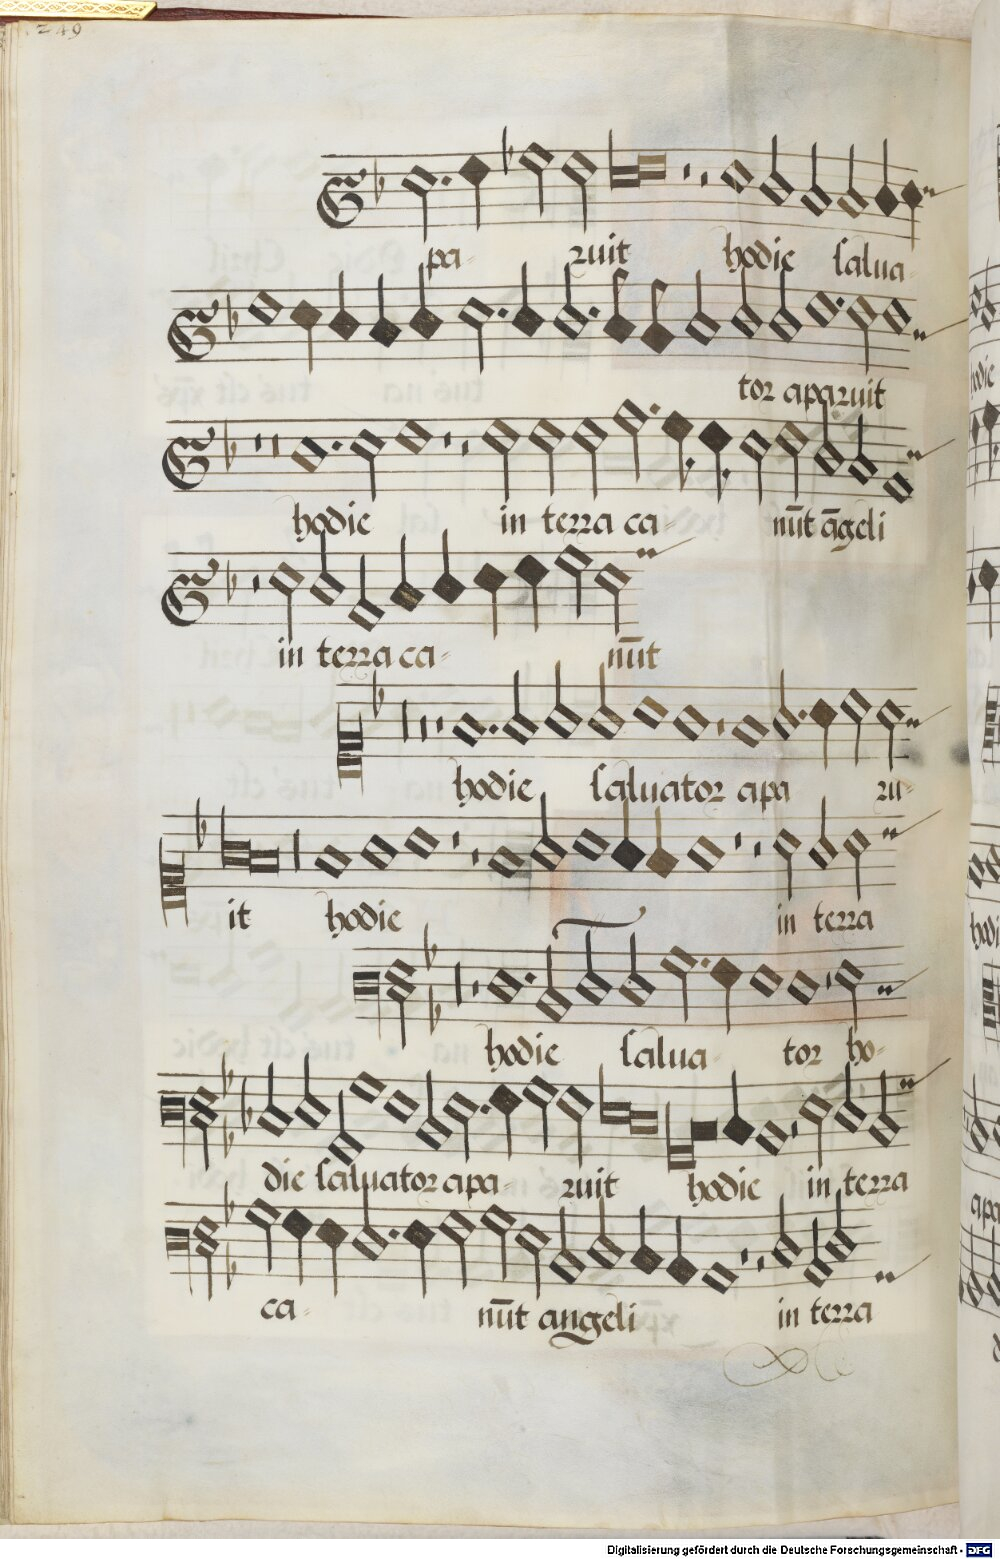 249
pa- ruit hodie salua-
tor aparuit
hodie in terra ca- nūt āgeli
in terra ca- nūt
hodie saluator apa ru-
it hodie in terra
hodie salua- tor ho-
die saluator apa- ruit hodie in terra
ca- nūt angeli in terra
Digitalisierung gefördert durch die Deutsche Forschungsgemeinschaft - DFG